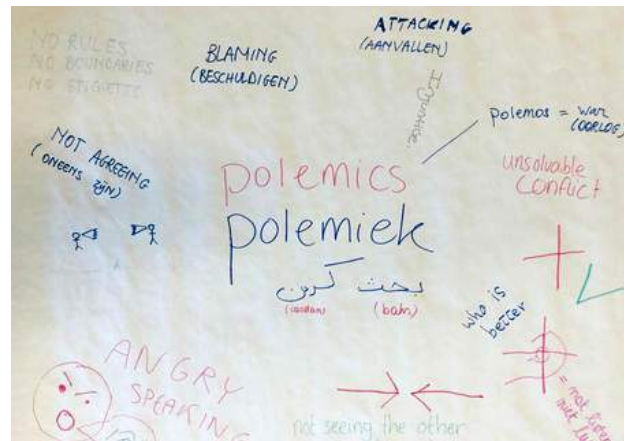 NO RULES
NO BOUNDARIES
NO ETIQUETTE
BLAMING
(BESCHULDIGEN)
ATTACKING
(AANVALLEN)
polemos = war
(OORLOG)
NOT AGREEING
(ONEENS ZIJN)
unsolvable
conflict
polemics
polemiek
بحث کردن
(bahs)
who is
better
ANGRY
SPEAKING
not seeing the other
= not